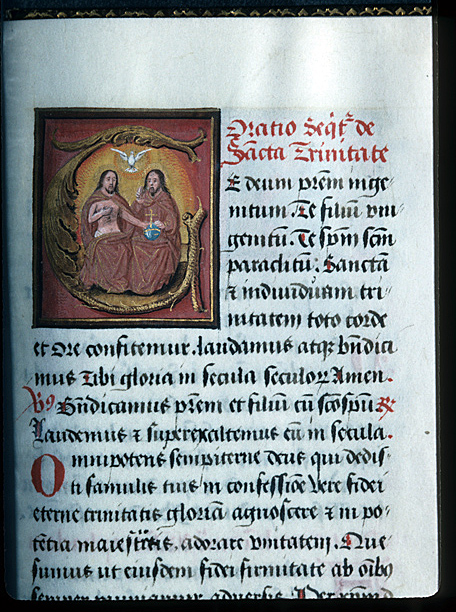 Oratio Seqͭͬ de
Sancta Trinitate
E deum prēm inge
nitum .Te filiū vni
genitū. Te spm̄ scm̄
paraclitū: Sanctā
⁊ indiuiduam tri
nitatem toto corde
et ore confitemur. laudamus atq; bn̄dici
mus Tibi gloria in secula seculoꝝ Amen.
V9 Bn̄dicamus prēm et filiū cū scōspūi R͛
Laudemus ⁊ superexaltemus eū in secula.
Omnipotens sempiterne deus qui dedis
ti famulis tuis in confessiōe vere fidei
eterne trinitatis gloriā agnoscere ⁊ in po
tētia maiestatis, adorare vnitatem. Que
sumus ut eiusdem fidei firmitate ab oīb9
semper muniamur aduersis. Per